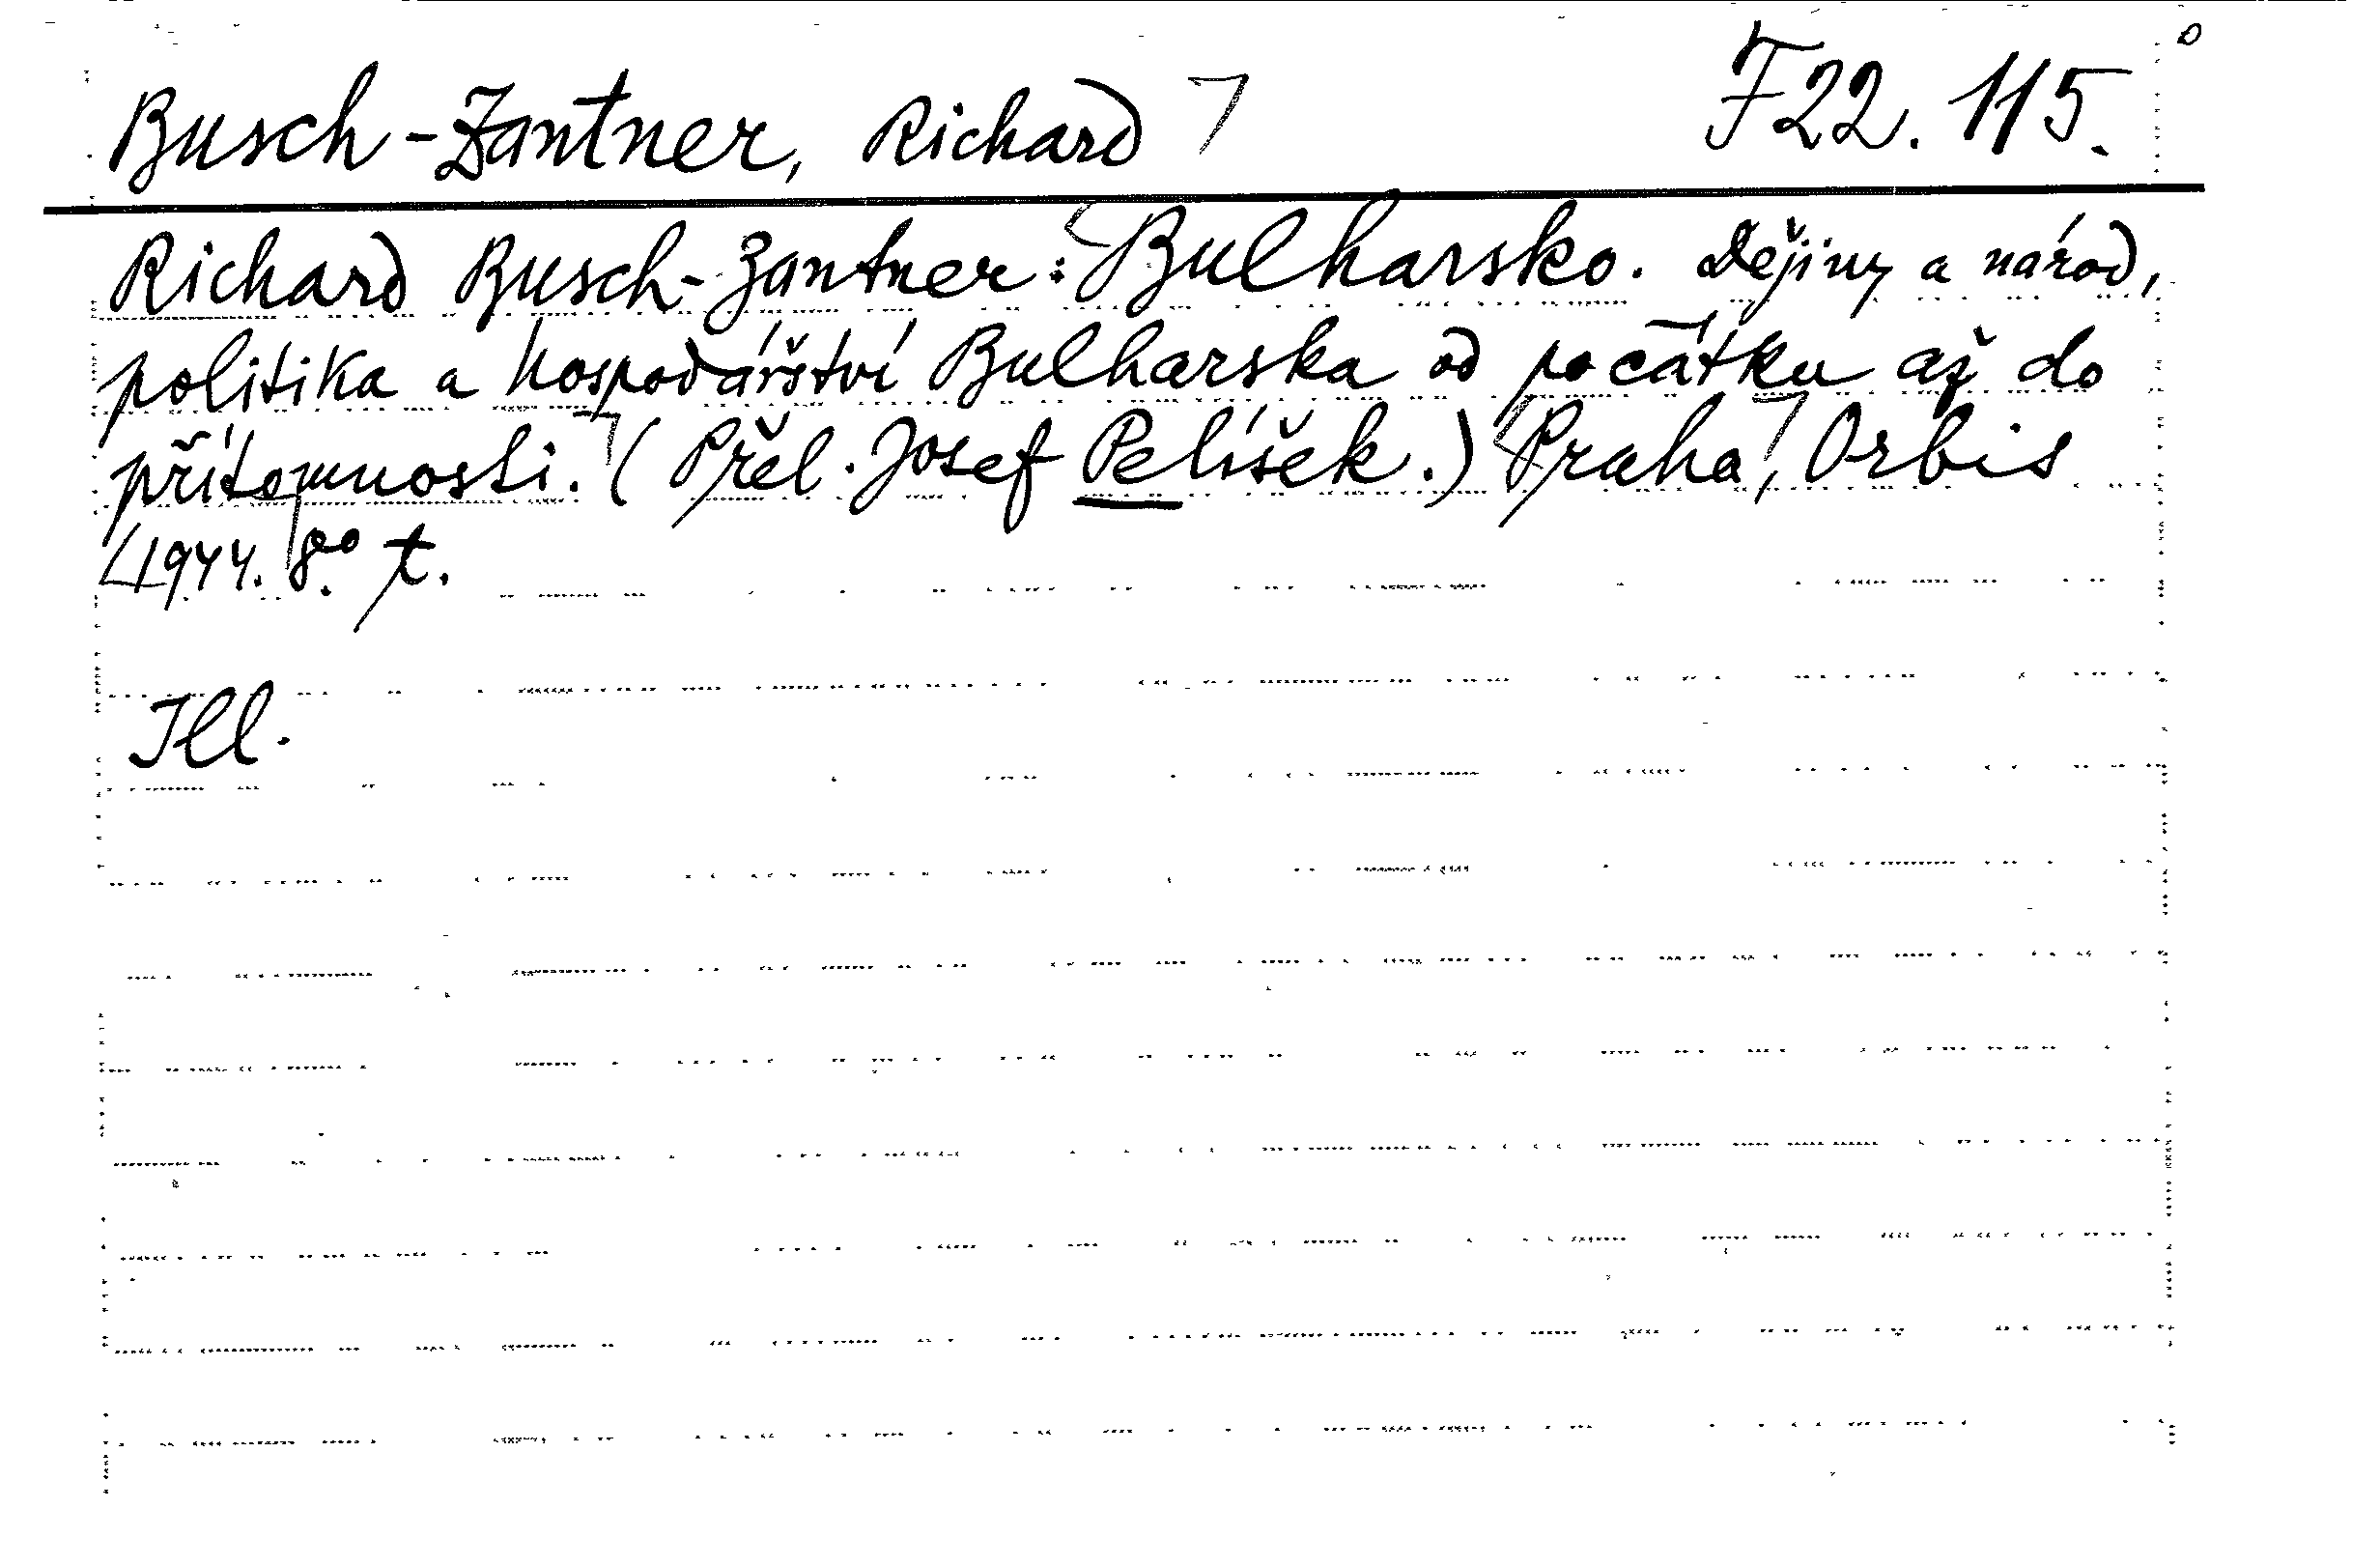 Busch-Zantner, Richard F 22.115.
Richard Busch-Zantner: Bulharsko. Dějiny a národ,
politika a hospodářství Bulharska od počátku až do
přítomnosti. (Přel. Josef Pelíšek.) Praha, Orbis
1944. 8° t.
Ill.